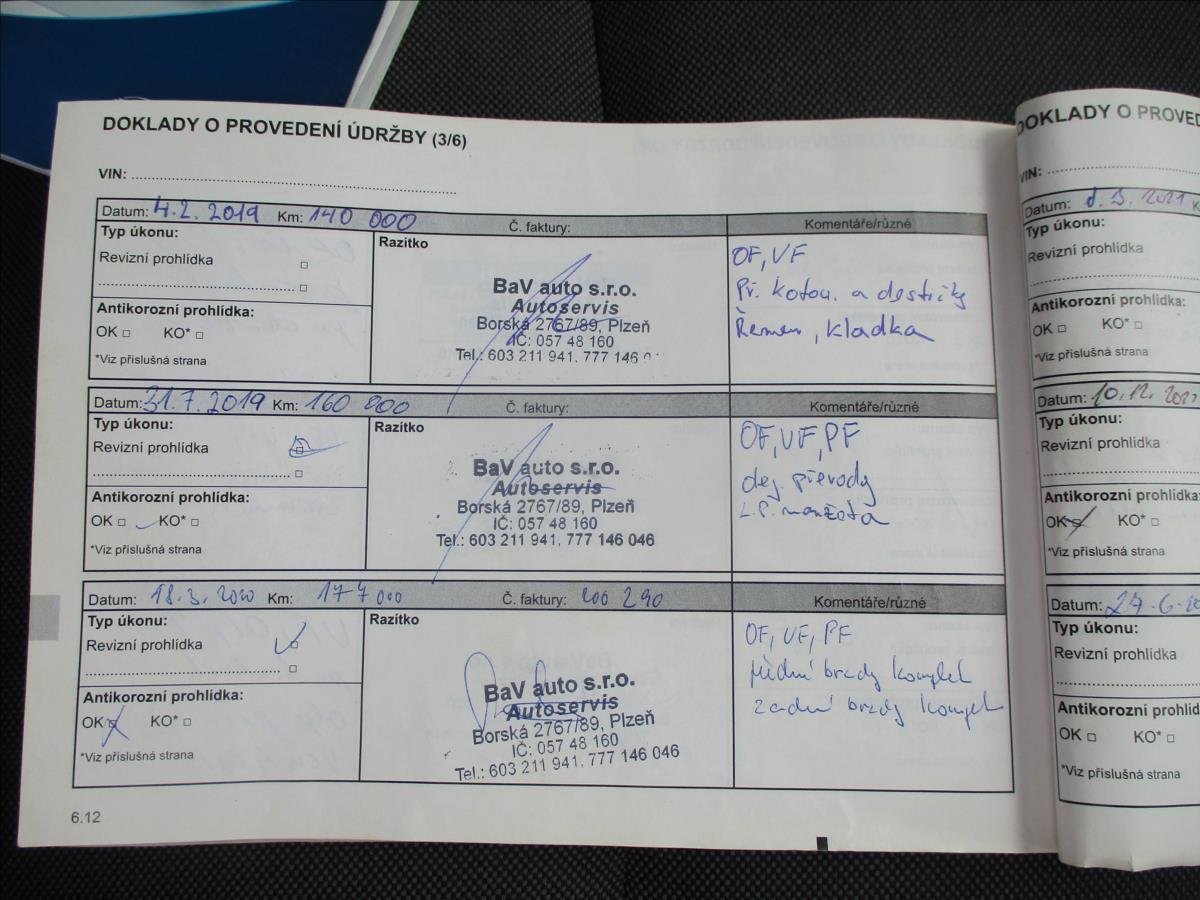 DOKLADY O PROVEDENÍ ÚDRŽBY (3/6)
VIN:
Datum: 4.2. 2019 Km: 140 000 Č. faktury: Komentáře/různé
Typ úkonu:
Revizní prohlídka
Antikorozní prohlídka:
OK KO*
*Viz příslušná strana
Razítko
BaV auto s.r.o.
Autoservis
Borská 2767/89, Plzeň
IČ: 057 48 160
Tel.: 603 211 941, 777 146 0
OF, VF
Př. kotou. a destičky
Řemen, kladka
Datum: 31.7.2019 Km: 160 000 Č. faktury: Komentáře/různé
Typ úkonu:
Revizní prohlídka
Antikorozní prohlídka:
OK KO*
*Viz příslušná strana
Razítko
BaV auto s.r.o.
Autoservis
Borská 2767/89, Plzeň
IČ: 057 48 160
Tel.: 603 211 941, 777 146 046
OF, VF, PF
převody
L.P. manžeta
Datum: 18.3.2020 Km: 177 000 Č. faktury: 200 290 Komentáře/různé
Typ úkonu:
Revizní prohlídka
Antikorozní prohlídka:
OK KO*
*Viz příslušná strana
Razítko
BaV auto s.r.o.
Autoservis
Borská 2767/89, Plzeň
IČ: 057 48 160
Tel.: 603 211 941, 777 146 046
OF, VF, PF
přední brzdy komplet
zadní brzdy komplet
6.12
DOKLADY O PROVED
VIN:
Datum: 2021 K
Typ úkonu:
Revizní prohlídka
Antikorozní prohlídka:
OK KO*
*Viz příslušná strana
Datum: 10.12.202
Typ úkonu:
Revizní prohlídka
Antikorozní prohlídka:
OK KO*
*Viz příslušná strana
Datum: 27.6.20
Typ úkonu:
Revizní prohlídka
Antikorozní prohlíd
OK KO*
*Viz příslušná strana